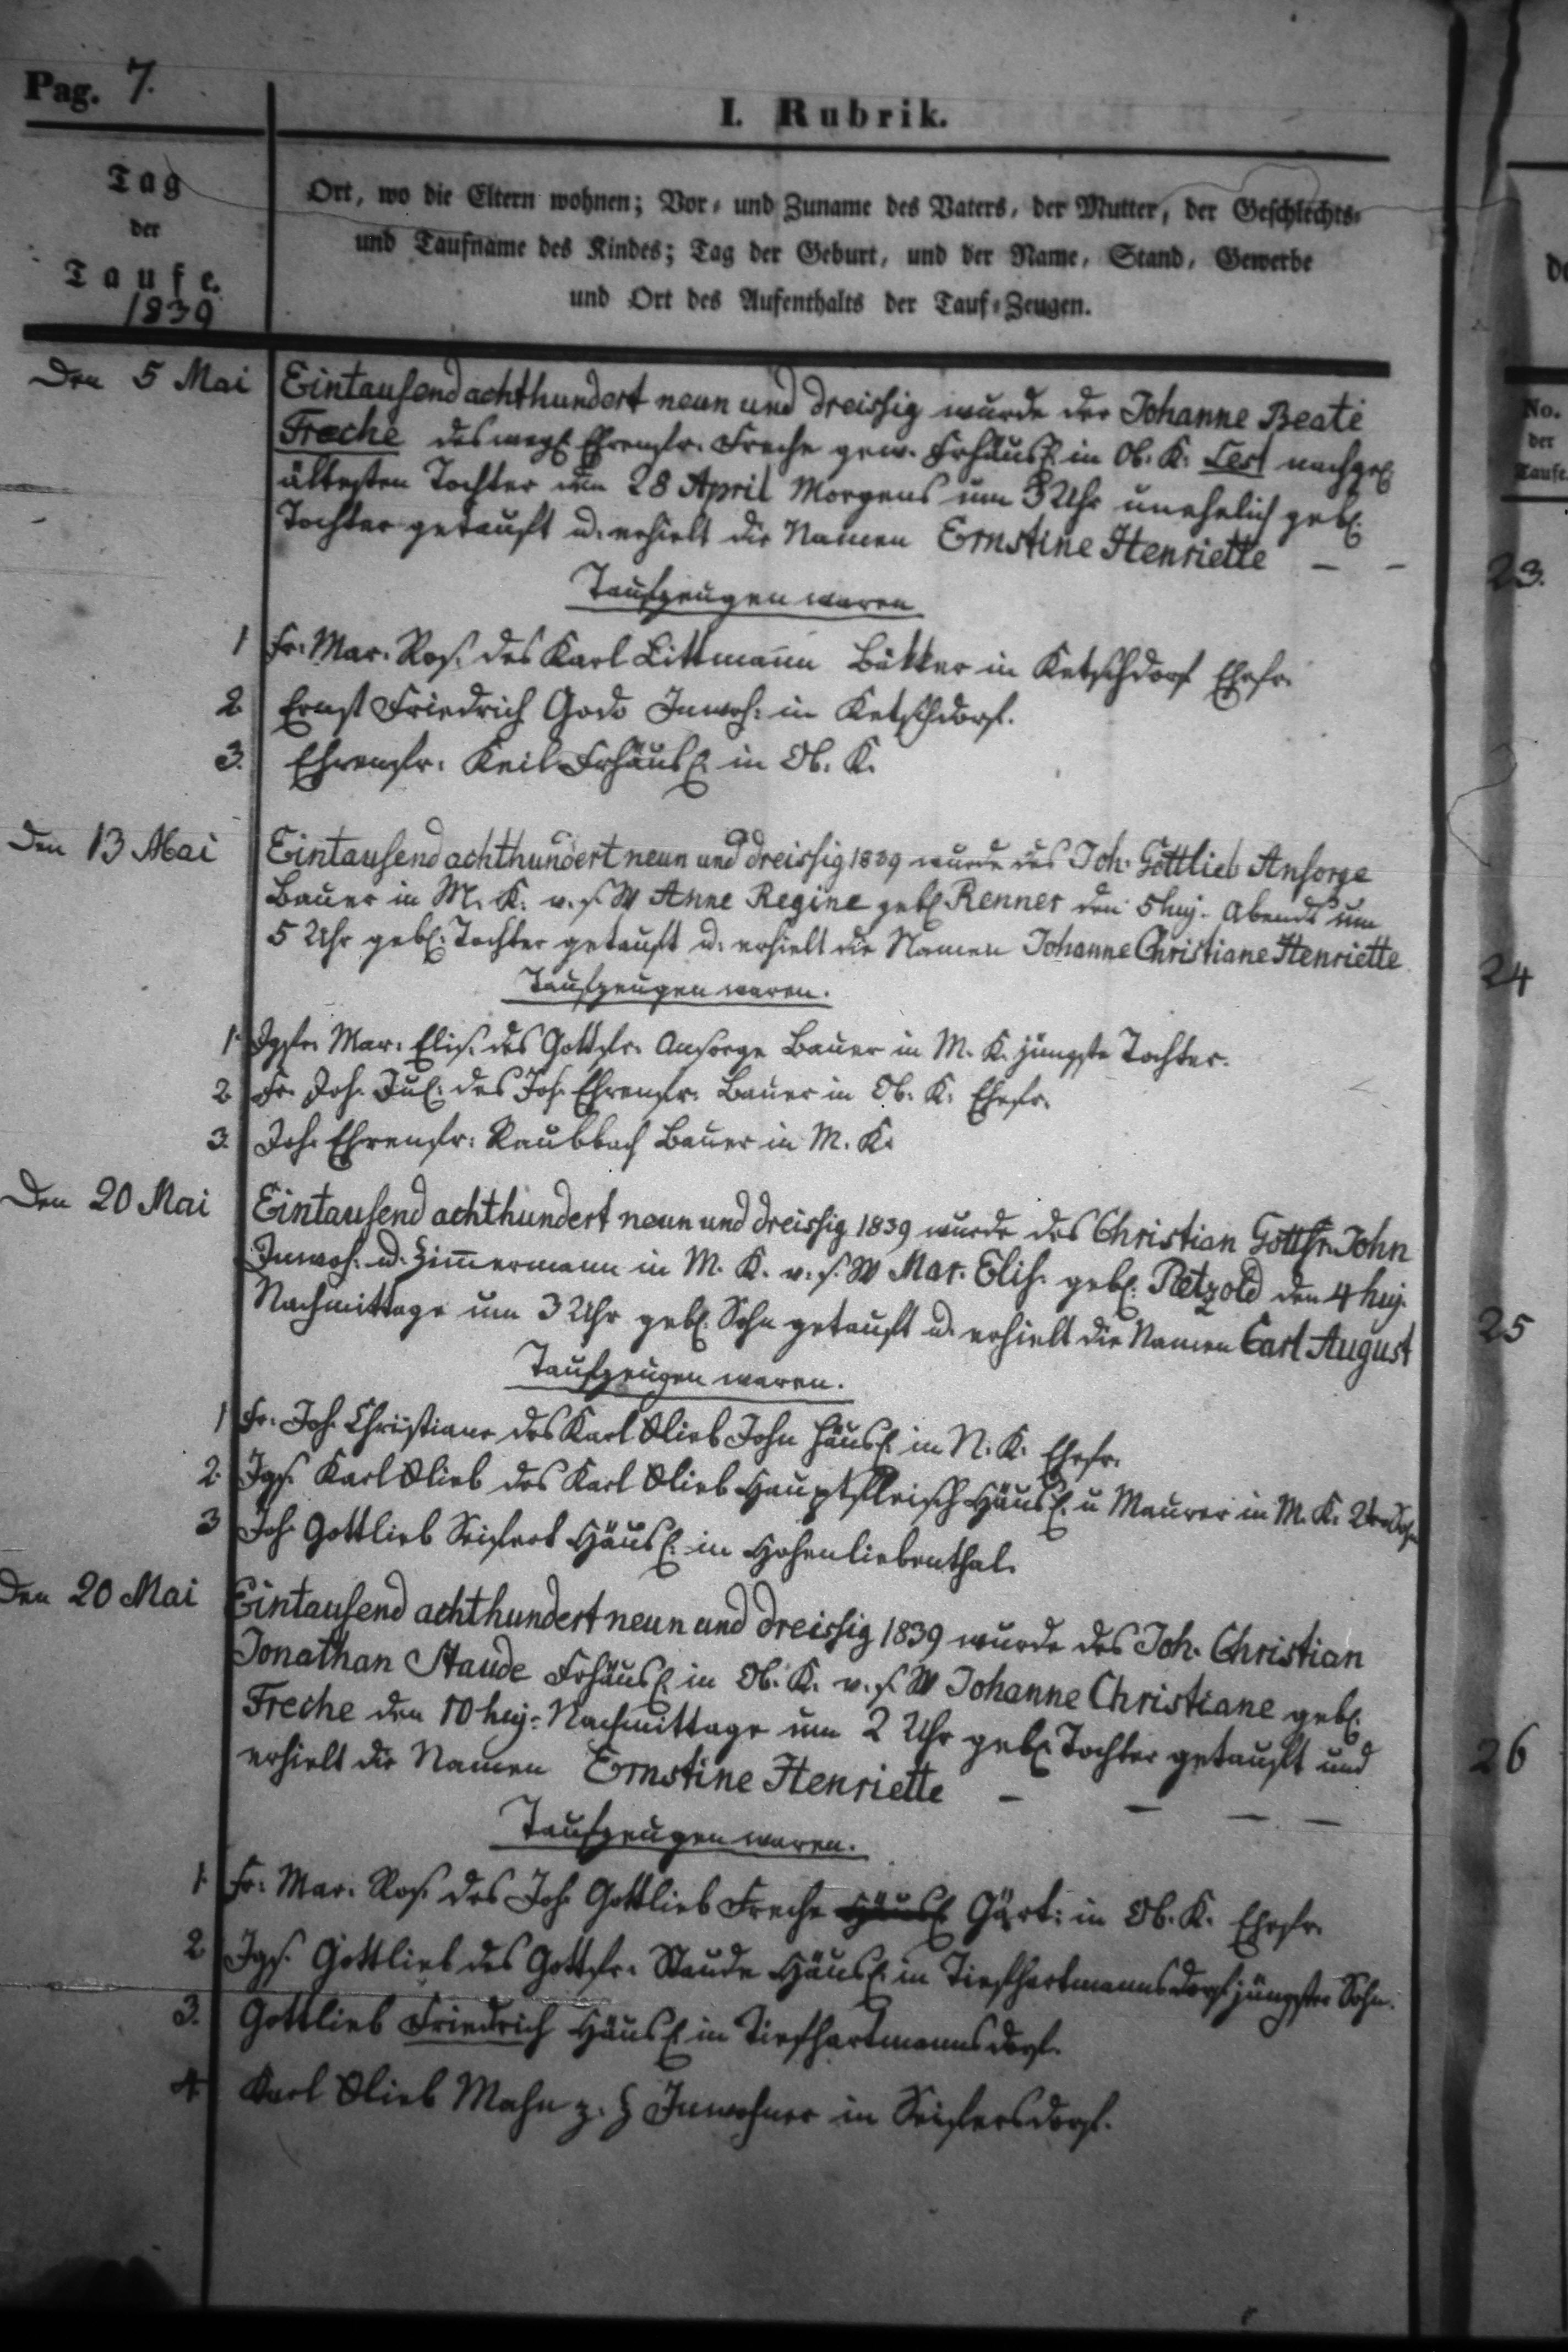 Pag. 7.
I. Rubrik.
Tag
der
Taufe.
1839
Ort, wo die Eltern wohnen; Vor- und Zuname des Vaters, der Mutter, der Geschlechts-
und Taufname des Kindes; Tag der Geburt, und der Name, Stand, Gewerbe
und Ort des Aufenthalts der Tauf-Zeugen.
No.
der
Taufe
Den 5 Mai
Eintausend achthundert neun und dreissig wurde der Johanne Beate
Freche des weyl. Ehrenfr. Freche gew. Frhäusl. in Ob. K. Lest nachgel.
ältesten Tochter den 28 April Morgens um 3 Uhr unehelich gebl.
Tochter getauft u. erhielt die Namen Ernstine Henriette – –
23.
Taufzeugen waren
1 Fr. Mar. Ros. des Karl Littmann Bäkker in Ketschdorf Ehefr.
2 Ernst Friedrich Godo Inwoh. in Ketschdorf.
3. Ehrenfr. Keil Frhäusl. in Ob. K.
Den 13 Mai
Eintausend achthundert neun und dreissig 1839 wurde des Joh. Gottlieb Ansorge
Bauer in M. K. v. s. W Anne Regine gebl. Renner den 5 huj. Abends um
5 Uhr gebl. Tochter getauft u. erhielt die Namen Johanne Christiane Henriette
24
Taufzeugen waren.
1. Jgfr. Mar. Elis. des Gottfr. Ansorge Bauer in M. K. jüngste Tochter.
2. Fr. Joh. Jul. des Joh. Ehrenfr. Bauer in Ob. K. Ehefr.
3. Joh. Ehrenfr. Raubbach Bauer in M. K.
Den 20 Mai
Eintausend achthundert neun und dreissig 1839 wurde des Christian Gottfr. John
Inwoh. u. Zimmermann in M. K. v. s. W Mar. Elis. gebl. Pætzold den 4 huj.
Nachmittage um 3 Uhr gebl. Sohn getauft u. erhielt die Namen Carl August
25
Taufzeugen waren.
1 Fr. Joh. Christiane des Karl Glieb John Häusl. in N. K. Ehefr.
2. Jgs. Karl Glieb des Karl Glieb Hauptfleisch Häusl. u Maurer in M. K. 2ter Sohn
3 Joh. Gottlieb Seifert Häusl. in Hohenliebenthal.
Den 20 Mai
Eintausend achthundert neun und dreissig 1839 wurde des Joh. Christian
Jonathan Staude Frhäusl. in Ob. K. v. s. W Johanne Christiane gebl.
Freche den 10 huj. Nachmittage um 2 Uhr gebl. Tochter getauft und
erhielt die Namen Ernstine Henriette – – – –
26
Taufzeugen waren.
1. Fr. Mar. Ros. des Joh. Gottlieb Freche Häusl. Gärt. in Ob. K. Ehefr.
2 Jgs. Gottlieb des Gottfr. Staude Häusl. in Tiefhartmannsdorf jüngster Sohn.
3. Gottlieb Friedrich Häusl. in Tiefhartmannsdorf.
4 Karl Glieb Mahn z. Z Inwohner in Seifersdorf.